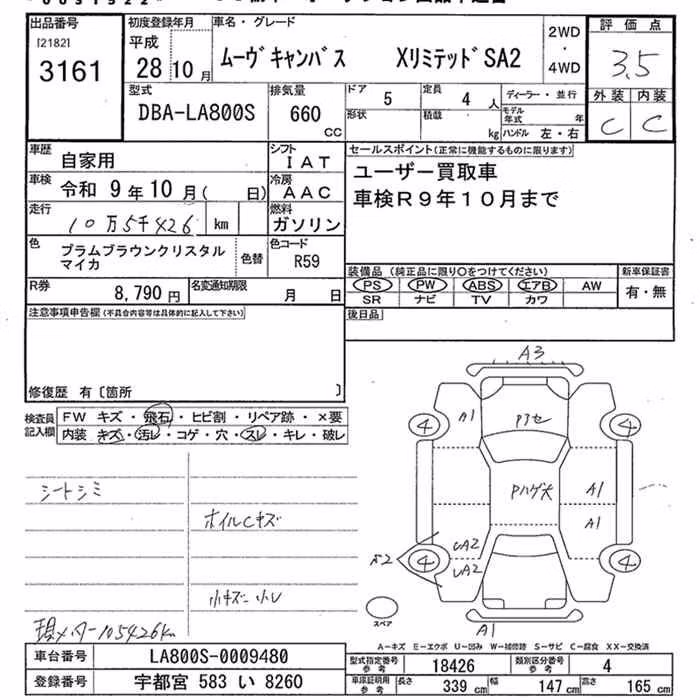 出品番号 初度登録年月 車名・グレード 2WD・4WD 評価点
[21821]
3161 平成 28年10月 ムーヴキャンバス XリミテッドSA2 3.5
外装 内装
C C
型式 DBA-LA800S 排気量 660 CC ドア 5 定員 4 人 ディーラー・並行
形状 積載 kg モデル年式 年
ハンドル 左・右
車歴 自家用 シフト IAT セールスポイント(正常に機能するものに限ります)
車検 令和 9年10月( 日) 冷房 AAC ユーザー買取車
走行 10万5千426 km 燃料 ガソリン 車検R9年10月まで
色 プラムブラウンクリスタルマイカ 色替 色コード R59
装備品(純正品に限り○をつけてください) 新車保証書
PS PW ABS エアB AW 有・無
SR ナビ TV カワ
R券 8,790円 名変通知期限 月 日
注意事項申告欄(不具合内容等は具体的に記入して下さい) 後日品
修復歴 有[箇所 ]
検査員記入欄 FW キズ・飛石・ヒビ割・リペア跡・×要
内装 キズ・汚レ・コゲ・穴・スレ・キレ・破レ
シートシミ
ホイルCキズ
小キズ 小凹
現メーター105426km
A3
4 A1 4
Pハゲ大 A1
A1
4 UA2 4
UA2
A1
スペア
A-キズ E-エクボ U-凹み W-補修跡 S-サビ C-腐食 XX-交換済
車台番号 LA800S-0009480 型式指定番号 参考 18426 類別区分番号 参考 4
登録番号 宇都宮 583 い 8260 車庫証明用 参考 長さ 339 cm 幅 147 cm 高さ 165 cm